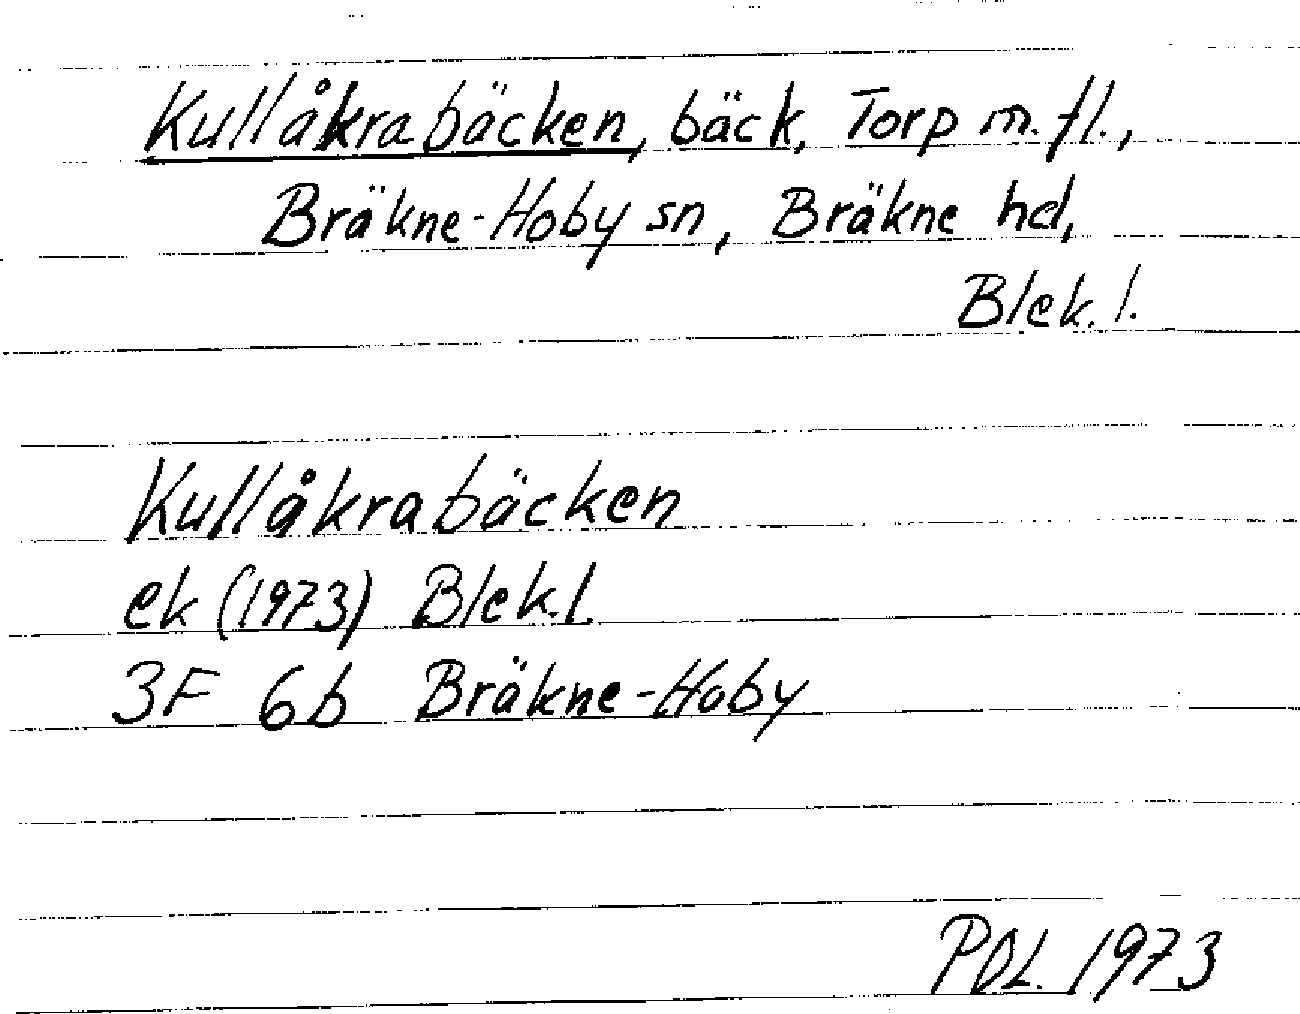 Kullåkrabäcken, bäck, Torp m.fl.,
Bräkne-Hoby sn, Bräkne hd,
Blek. l.
Kullåkrabäcken
ek (1973) Blek.l.
3F 6b Bräkne-Hoby
PDL. 1973